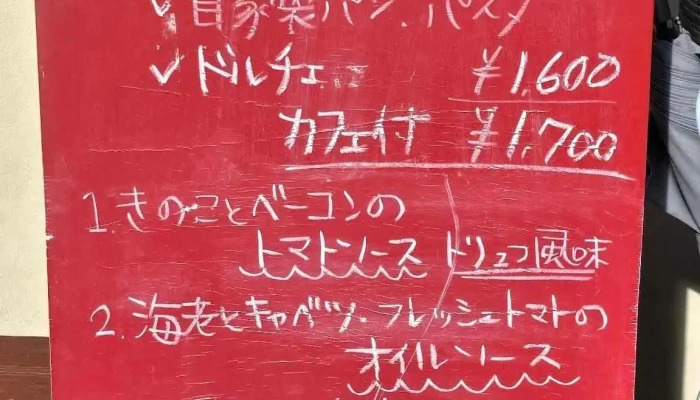 ✓自家製パン、パスタ
✓ドルチェ ¥1,600
カフェ付 ¥1,700
1.きのことベーコンの
トマトソース トリュフ風味
2.海老とキャベツ・フレッシュトマトの
オイルソース